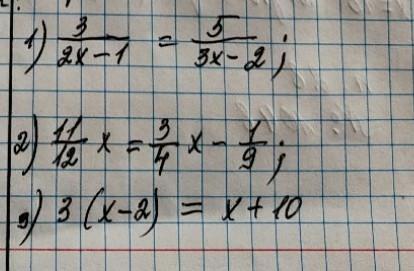 1) 3/(2x-1) = 5/(3x-2);
2) 11/12 x = 3/4 x - 1/9;
3) 3(x-2) = x+10